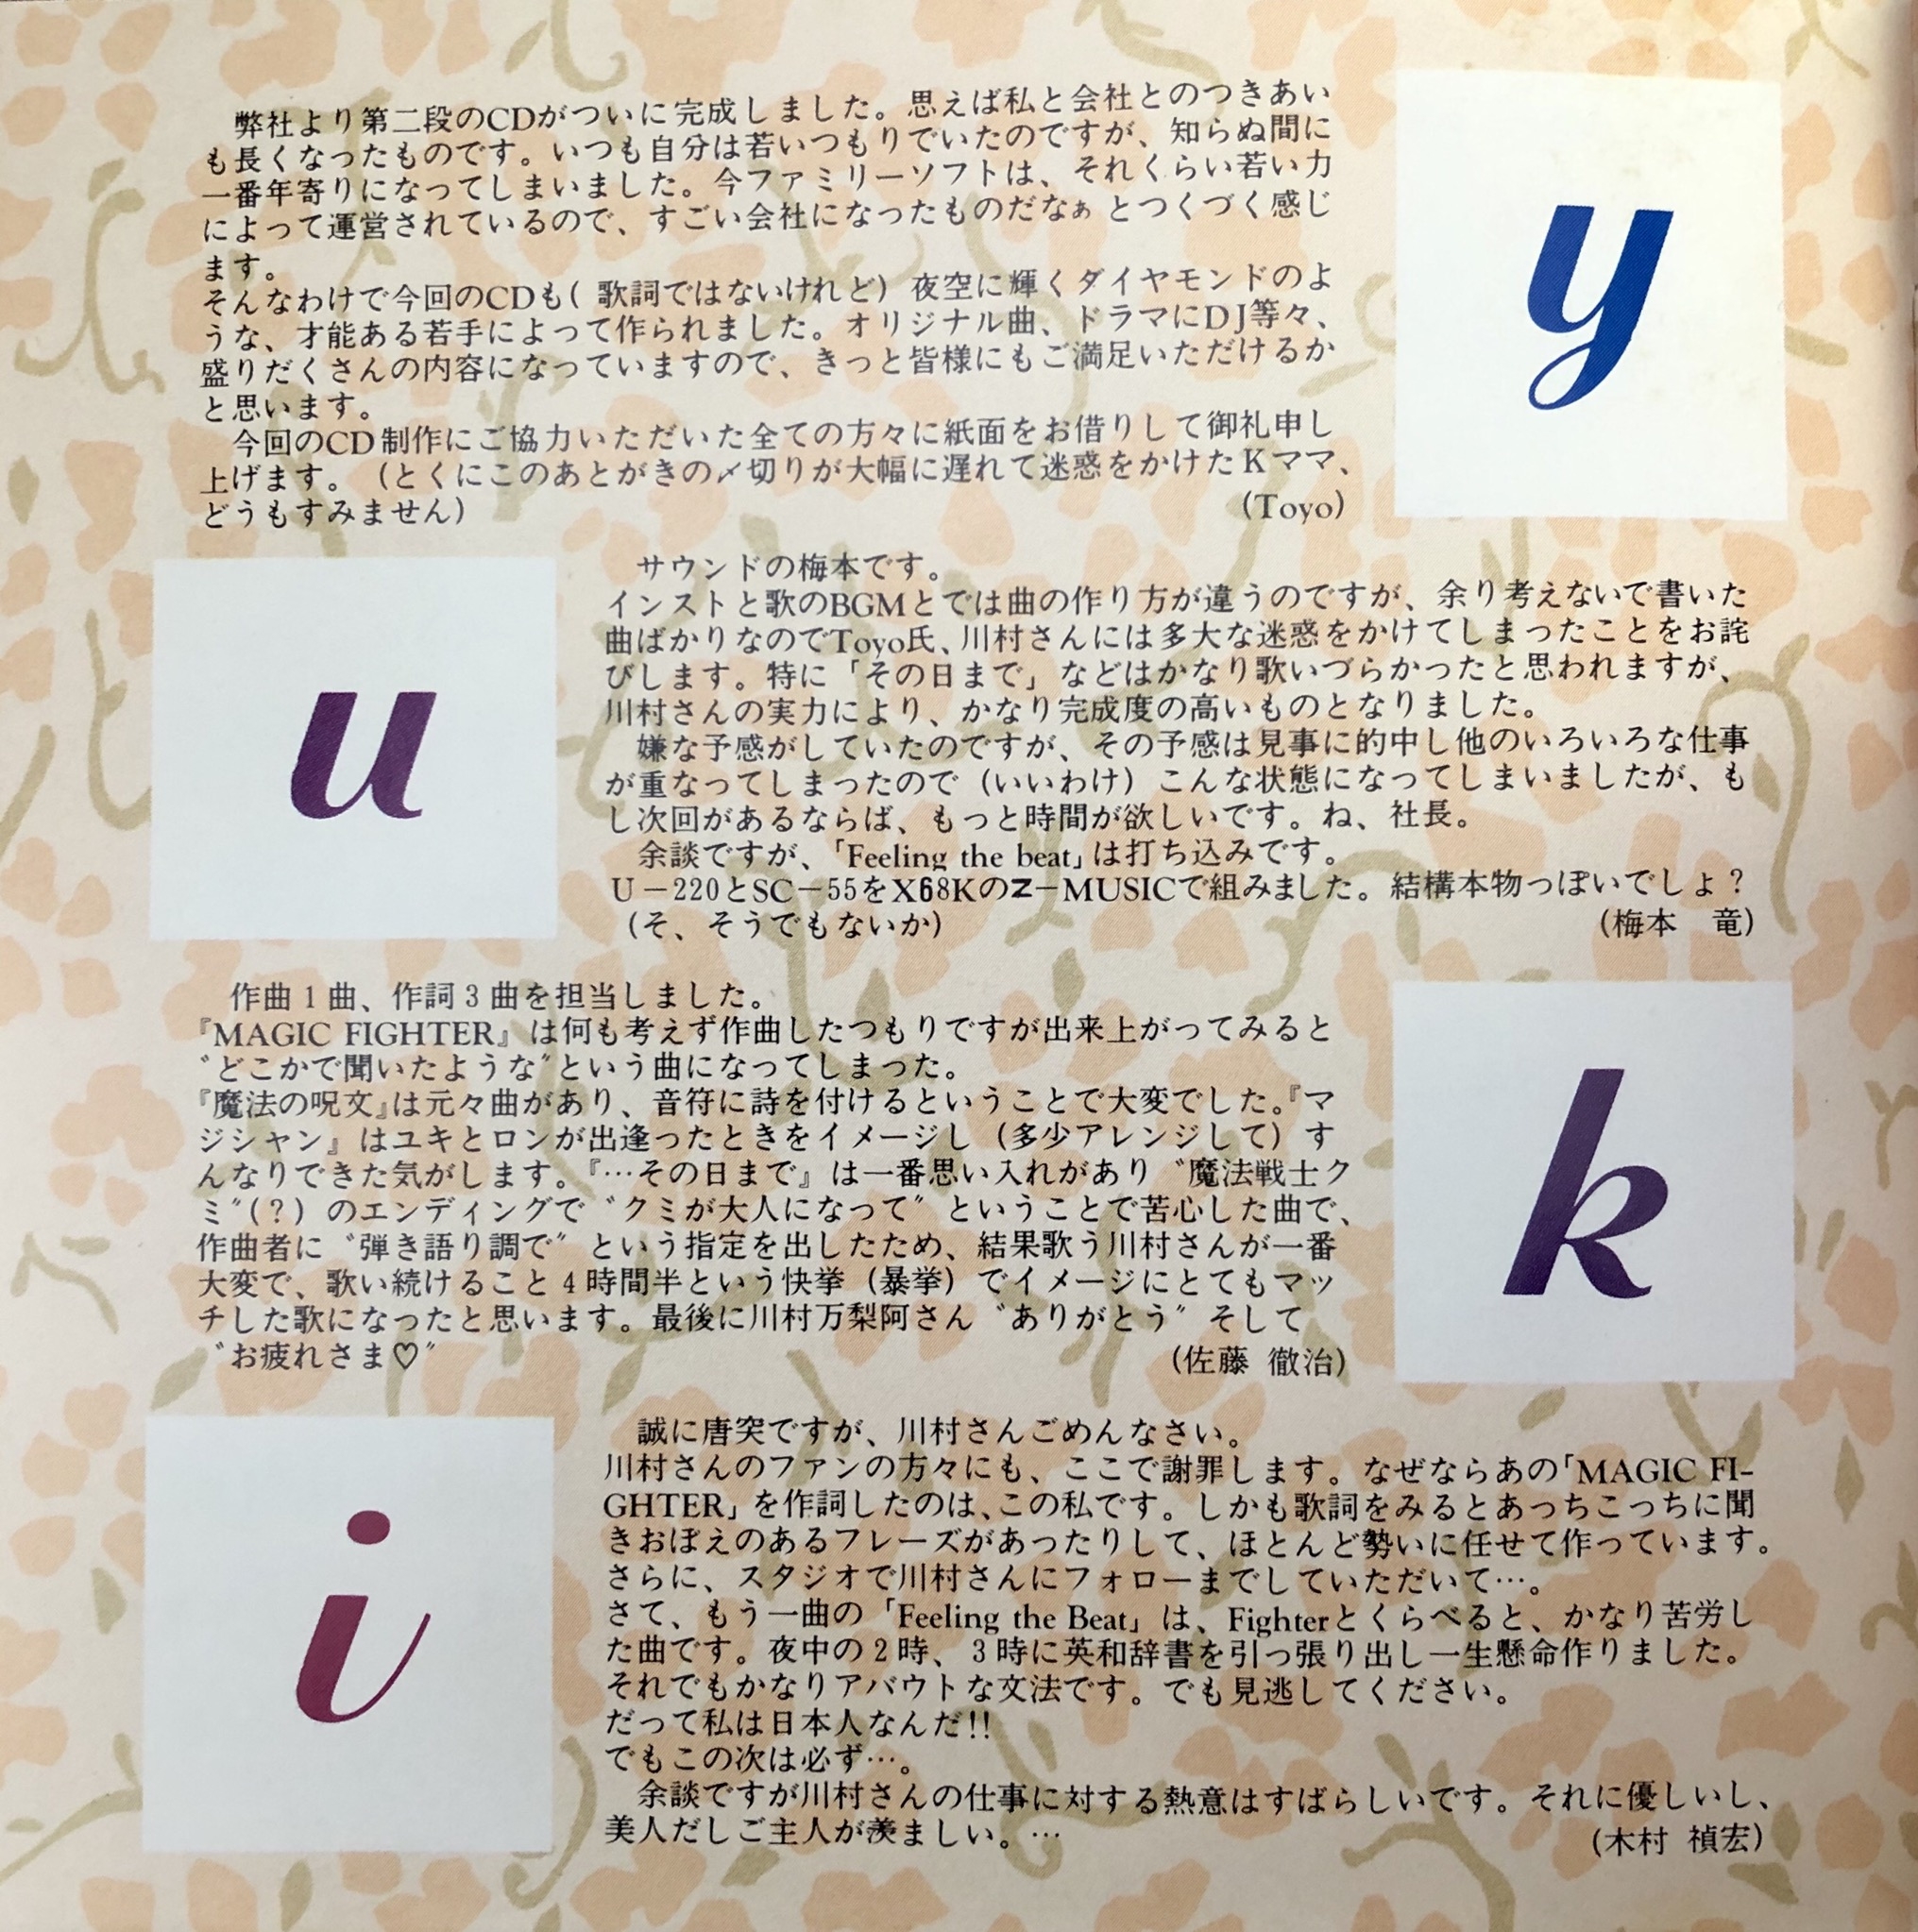 弊社より第二段のCDがついに完成しました。思えば私と会社とのつきあい
も長くなったものです。いつも自分は若いつもりでいたのですが、知らぬ間に
一番年寄りになってしまいました。今ファミリーソフトは、それくらい若い力
によって運営されているので、すごい会社になったものだなぁとつくづく感じ
ます。
そんなわけで今回のCDも(歌詞ではないけれど)夜空に輝くダイヤモンドのよ
うな、才能ある若手によって作られました。オリジナル曲、ドラマにDJ等々、
盛りだくさんの内容になっていますので、きっと皆様にもご満足いただけるか
と思います。
今回のCD制作にご協力いただいた全ての方々に紙面をお借りして御礼申し
上げます。(とくにこのあとがきの〆切りが大幅に遅れて迷惑をかけたKママ、
どうもすみません)
(Toyo)
y
u
サウンドの梅本です。
インストと歌のBGMとでは曲の作り方が違うのですが、余り考えないで書いた
曲ばかりなのでToyo氏、川村さんには多大な迷惑をかけてしまったことをお詫
びします。特に「その日まで」などはかなり歌いづらかったと思われますが、
川村さんの実力により、かなり完成度の高いものとなりました。
嫌な予感がしていたのですが、その予感は見事に的中し他のいろいろな仕事
が重なってしまったので(いいわけ)こんな状態になってしまいましたが、も
し次回があるならば、もっと時間が欲しいです。ね、社長。
余談ですが、「Feeling the beat」は打ち込みです。
U－220とSC－55をX68KのZ－MUSICで組みました。結構本物っぽいでしょ?
(そ、そうでもないか)
(梅本 竜)
作曲1曲、作詞3曲を担当しました。
『MAGIC FIGHTER』は何も考えず作曲したつもりですが出来上がってみると
〝どこかで聞いたような〞という曲になってしまった。
『魔法の呪文』は元々曲があり、音符に詩を付けるということで大変でした。『マ
ジシャン』はユキとロンが出逢ったときをイメージし(多少アレンジして)す
んなりできた気がします。『…その日まで』は一番思い入れがあり〝魔法戦士ク
ミ〞(?)のエンディングで〝クミが大人になって〞ということで苦心した曲で、
作曲者に〝弾き語り調で〞という指定を出したため、結果歌う川村さんが一番
大変で、歌い続けること4時間半という快挙(暴挙)でイメージにとてもマッ
チした歌になったと思います。最後に川村万梨阿さん〝ありがとう〞そして
〝お疲れさま♡〞
(佐藤 徹治)
k
i
誠に唐突ですが、川村さんごめんなさい。
川村さんのファンの方々にも、ここで謝罪します。なぜならあの「MAGIC FI-
GHTER」を作詞したのは、この私です。しかも歌詞をみるとあっちこっちに聞
きおぼえのあるフレーズがあったりして、ほとんど勢いに任せて作っています。
さらに、スタジオで川村さんにフォローまでしていただいて…。
さて、もう一曲の「Feeling the Beat」は、Fighterとくらべると、かなり苦労し
た曲です。夜中の2時、3時に英和辞書を引っ張り出し一生懸命作りました。
それでもかなりアバウトな文法です。でも見逃してください。
だって私は日本人なんだ!!
でもこの次は必ず…。
余談ですが川村さんの仕事に対する熱意はすばらしいです。それに優しいし、
美人だしご主人が羨ましい。…
(木村 禎宏)